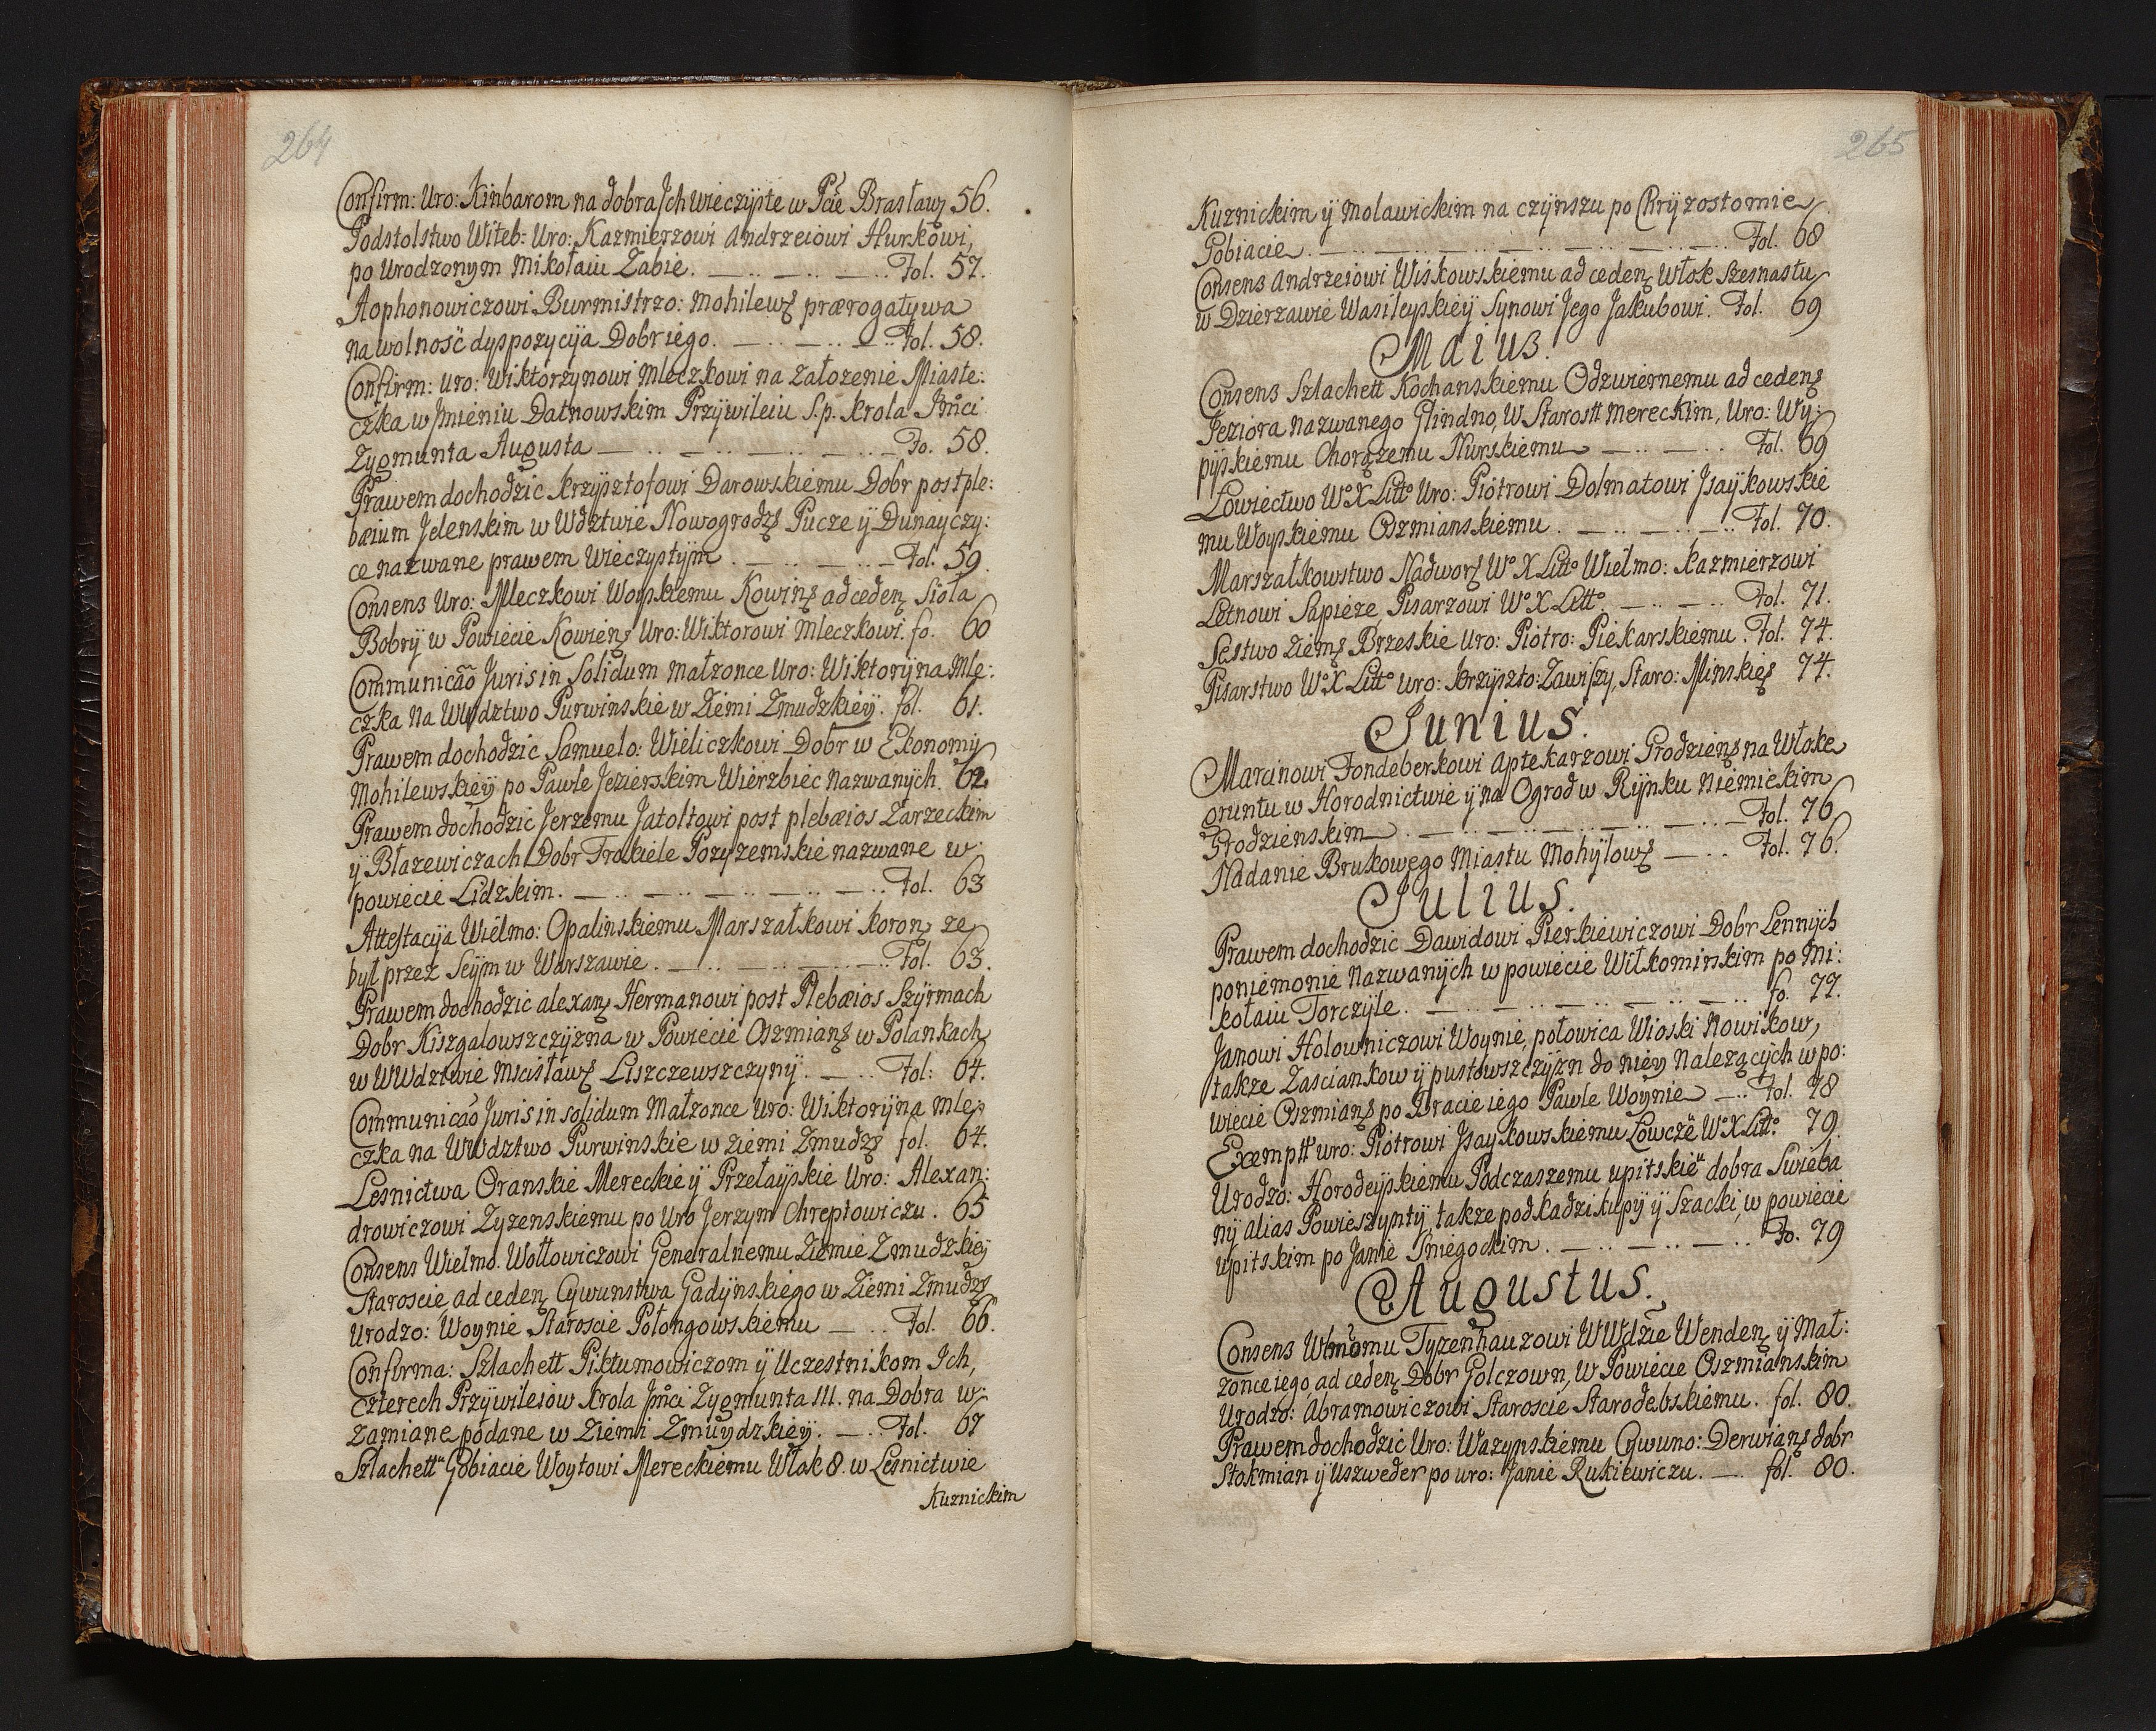 264
Confirm: Uro: Kinbarom na dobra Jch wieczyste w Pcie Brasław 56.
Podstolstwo Witeb: Uro: Kazmierzowi Andrzeiowi Hurkowi,
po Urodzonym Mikołaiu Zabie. Fol. 57.
Aophonowiczowi Burmistrzo: Mohilew prærogatywa
na wolnosć dyspozycija Dobr iego. Fol. 58.
Confirm: Uro: Wiktorzynowi Mleczkowi na załozenie Miaste:
czka w Jmieniu Datnowskim Przywileiu S.p. Krola Jmci
Zygmunta Augusta Fo. 58.
Prawem dochodzic Krzysztofowi Darowskiemu Dobr post ple:
bæium Jelenskim w Wdztwie Nowogrodz Pucze ÿ Dunayczy:
ce nazwane prawem Wieczystÿm Fol. 59.
Consens Uro: Mleczkowi Woyskiemu Kowin ad ceden Sioła
Bobrÿ w Powiecie Kowien Uro: Wiktorowi Mleczkowi. fo. 60
Communicão Juris in Solidum małzonce Uro: Wiktorÿna Mle:
czka na Wwdztwo Purwinskie w Ziemi Zmudzkieÿ. fol. 61.
Prawem dochodzic Samuelo: Wieliczkowi Dobr w Ekonomiÿ
Mohilewskieÿ po Pawle Jezierskim Wierzbiec nazwanÿch. 62
Prawem dochodzic Jerzemu Jatołtowi post plebæios Zarzeckim
ÿ Błazewiczach Dobr Trokiele Pozyzemskie nazwane w
powiecie Lidzkim. Fol. 63
Attestacija Wielmo: Opalinskiemu Marszałkowi Koron ze
był przez Seÿm w Warszawie. Fol. 63.
Prawem dochodzic Alexan Hermanowi post Plebæios Szÿrmach
Dobr Kiszgalowszczÿzna w Powiecie Oszmian w Polankach
w WWdztwie Mscisław Liszczewszczynÿ. Fol: 64.
Communicão Juris in solidum Małzonce Uro: Wiktorÿna Mle
czka na WWdztwo Purwinskie w ziemi Zmudz fol. 64.
Lesnictwa Oranskie Mereckie ÿ Przełaÿskie Uro: Alexan:
drowiczowi Zyzenskiemu po Uro Jerzym Chreptowiczu. 65
Consens Wielmo. Wołłowiczowi Generalnemu Ziemie Zmudzkieÿ
Staroscie ad ceden Cywunstwa Gadÿnskiego w Ziemi Zmudz
Urodzo: Woynie Staroscie Połongowskiemu Fol. 66.
Confirma: Szlachett Piktumowiczom ÿ Uczestnikom Jch,
czterech Przÿwileiow Krola Jmci Zygmunta III. na Dobra w
zamiane podane w Ziemi Zmuydzkieÿ. Fol. 67
Szlachett Gobiacie Woytowi Mereckiemu Włok 8. w Lesnictwie
Kuznickim
265
Kuznickim ÿ Molawickim na czÿnszu po Chrÿzostomie
Gobiacie. Fol. 68
Consens Andrzeiowi Wiskowskiemu ad ceden Włok szesnastu
w Dzierzawie Wasileyskieÿ Synowi Jego Jakubowi. Fol. 69
Maius.
Consens Szlachett Kochanskiemu Odzwiernemu ad ceden
Jeziora nazwanego Glindno, W Starostt Mereckim, Uro: Wy:
pÿskiemu Chorązemu Nurskiemu Fol. 69
Łowiectwo W°X Litt° Uro: Piotrowi Dolmatowi Jsaÿkowskie
mu Woyskiemu Oszmianskiemu. Fol. 70.
Marszałkowstwo Nadwor W°X Litt° Wielmo: Kazmierzowi
Letnowi Sapieze, Pisarzowi W°X Litt°. Fol. 71.
Sestwo Ziem Brzeskie Uro: Piotro: Piekarskiemu. Fol. 74.
Pisarstwo W°X Litt° Uro: Krzyszto: Zawiszy, Staro: Minskie 74.
Junius.
Marcinowi Fondeberkowi Aptekarzowi Grodzien na Włoke
gruntu w Horodnictwie ÿ na Ogrod w Rÿnku Niemieckim
Grodzienskim. Fol. 76
Nadanie Brukowego Miastu Mohÿlow Fol. 76.
Julius.
Prawem dochodzic Dawidowi Pierkiewiczowi Dobr Lennÿch
poniemonie nazwanÿch w powiecie Wiłkomirskim po Mi:
kołaiu Torczÿle. fo. 77.
Janowi Hołowniczowi Woynie, połowica Wioski Nowikow,
takze Zasciankow ÿ pustowszczÿzn do nieÿ nalezącÿch w po:
wiecie Oszmian po Bracie iego Pawle Woynie Fol. 78
Exemptt Uro: Piotrowi Jsaykowskiemu Łowcze W°X Litt° 79.
Urodzo: Horodeÿskiemu Podczaszemu upitskie dobra Swieba
nÿ alias Powieszyntÿ, takze podkadzikupÿ ÿ Szacki, w powiecie
upitskim po Janie Sniegockim. Fo. 79
Augustus.
Consens Wlmomu Tyzenhauzowi WWdzie Wenden ÿ Mał:
zonce iego ad ceden Dobr Golczown, W Powiecie Oszmianskim
Urodzo: Abramowiczowi Staroscie Starodebskiemu. fol. 80.
Prawem dochodzic Uro: Wazynskiemu Cywuno: Derwian dobr
Stokmian ÿ Uszweder po uro: Janie Rukiewiczu. fol. 80.